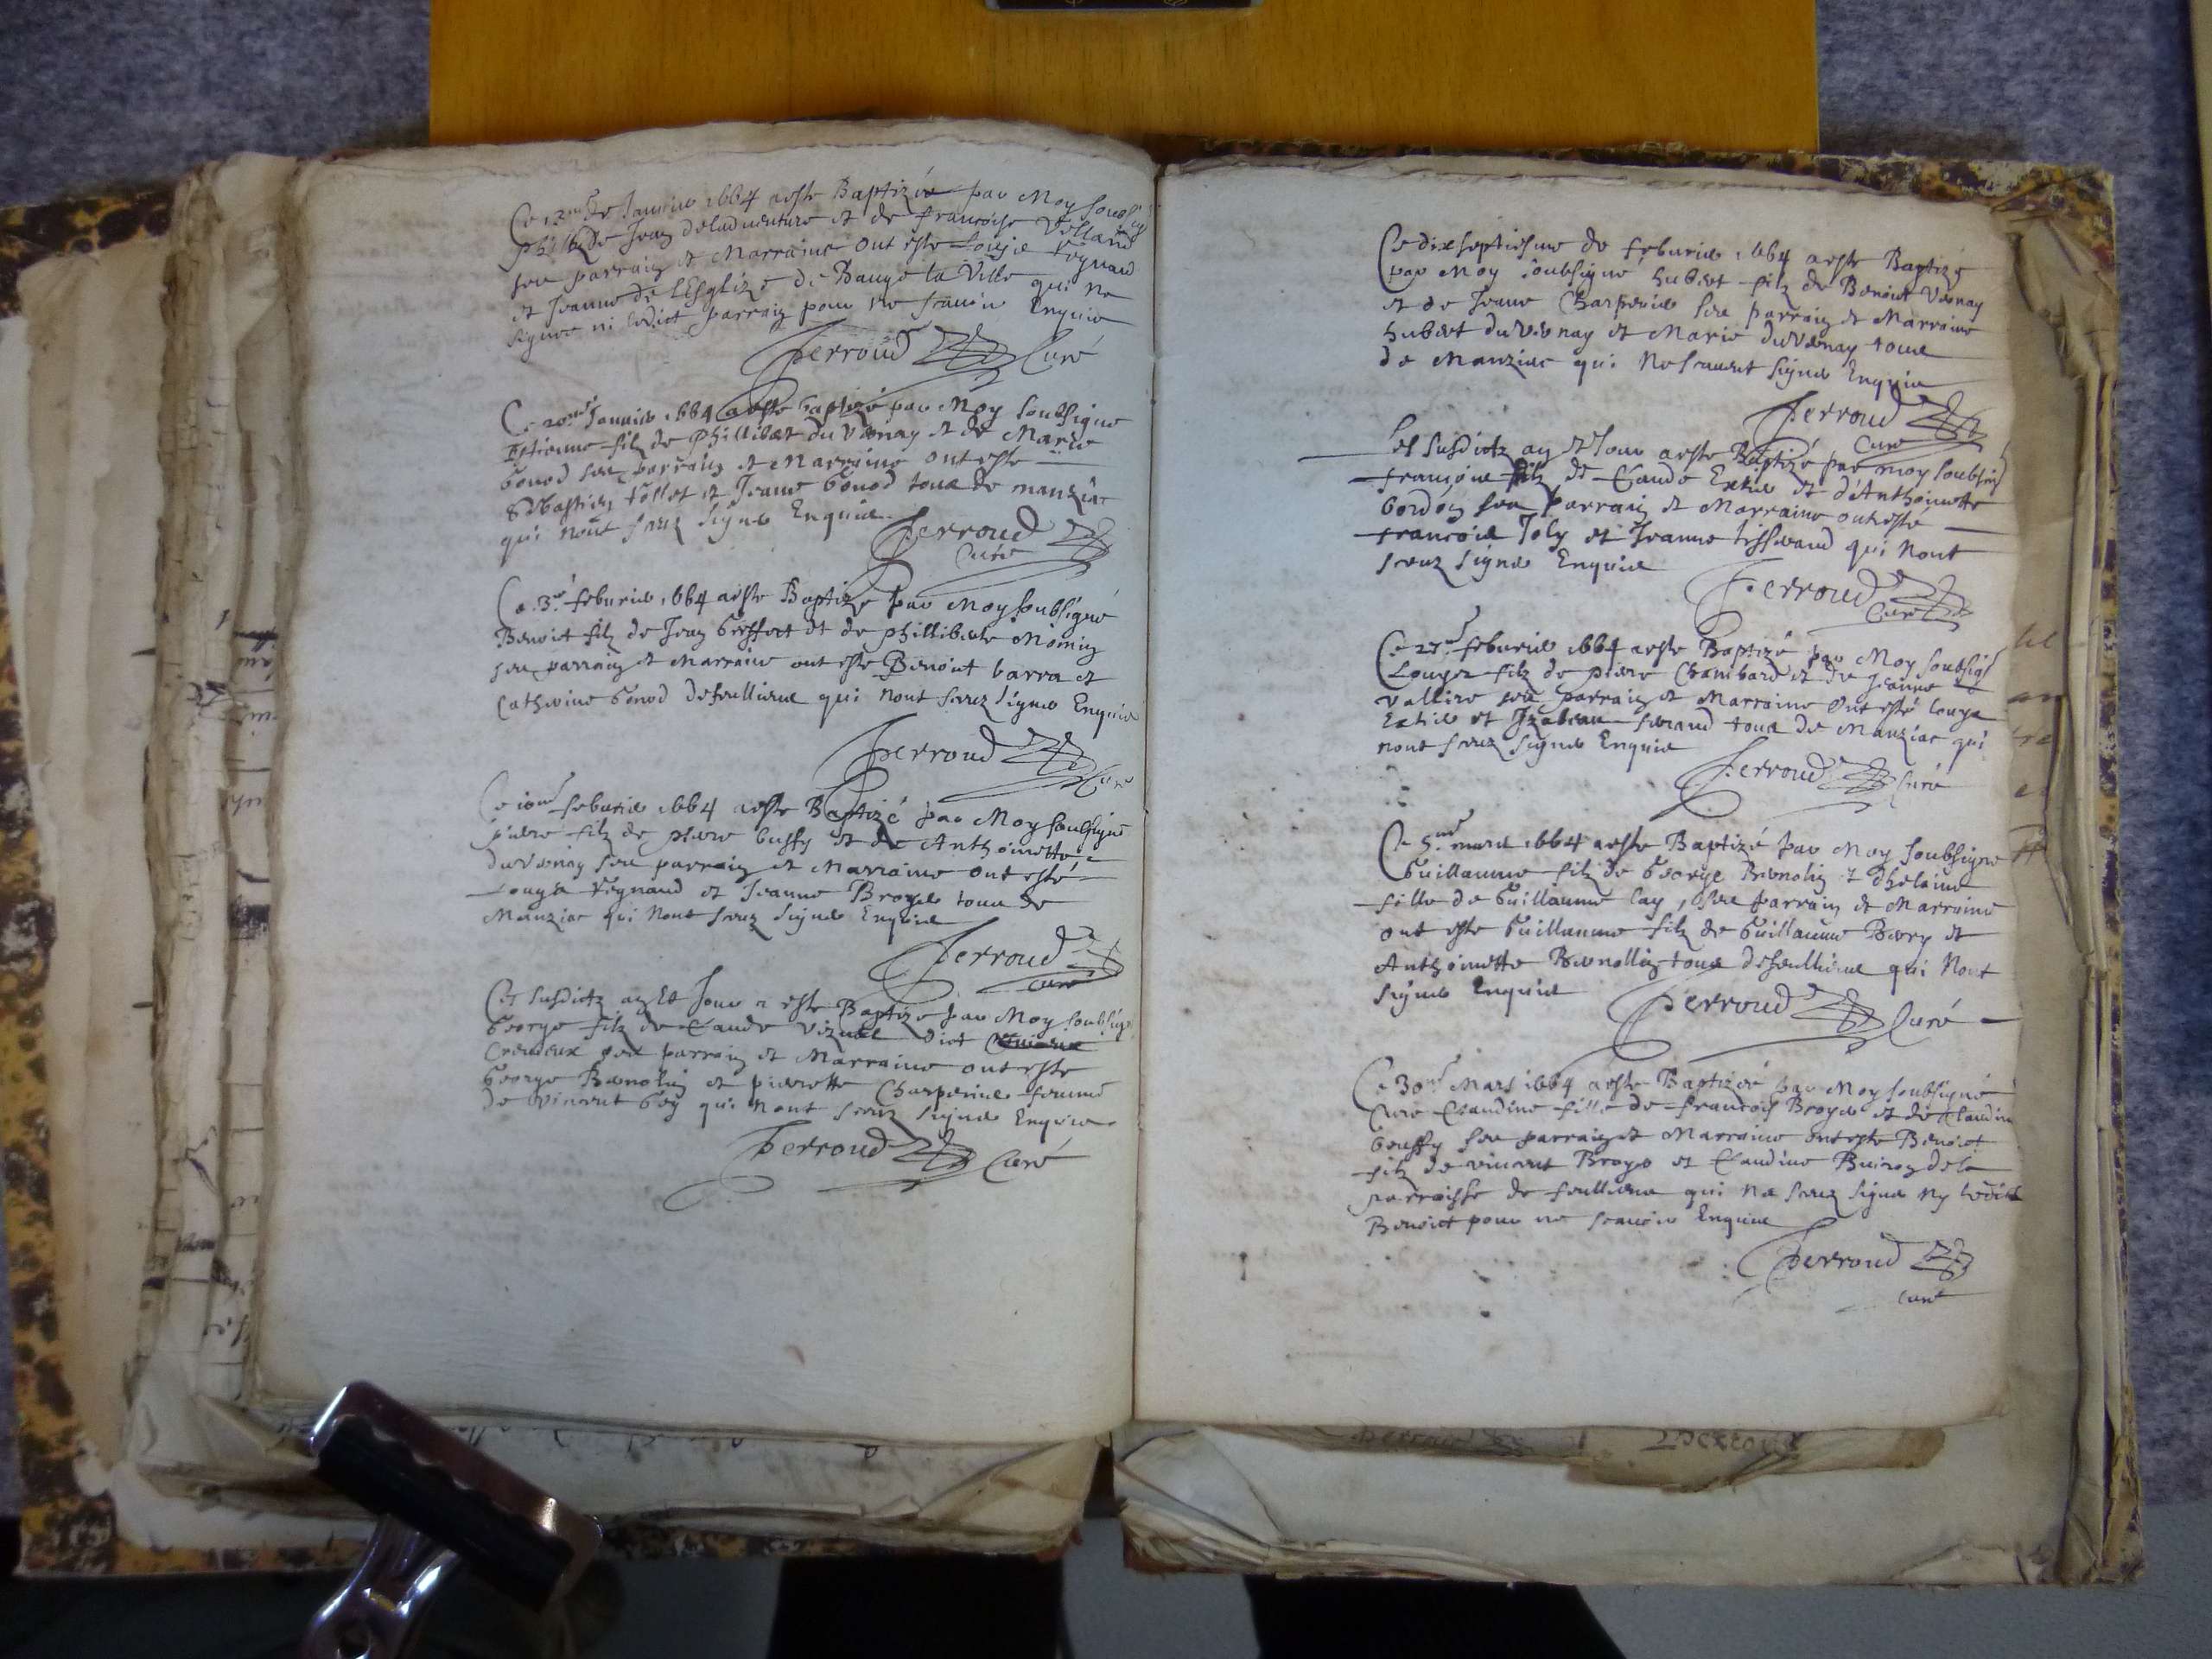 Ce 12me de Januier 1664 a este Baptizée par Moy soubsig
de Jean deladuenture et de francoise Velland
ses parrain et Marraine ont este Regnaud
et Jeanne de l'Esglize de Baugé la Ville qui ne
signer ni ledict parrain pour ne scauoir Enquis
Perroud Curé
Ce 20me Januier 1664 a este baptizé par Moy soubsigne
Estienne filz de Phillibert du Vernay et de Marie
Gonod ses parrain et Marraine ont este
Sebastien follet et Jeanne Gonod tous de manziac
qui n'ont sceuz signer Enquis
Perroud
Curé
Ce 3me feburier 1664 a este Baptize par Moy soubsigné
Benoict filz de Jean et de philliberte Monin
ses parrain et Marraine ont este Benoict barra et
Catherine Gonod defeulliens qui n'ont sceuz signer Enquis
Perroud Curé
Ce 10me feburier 1664 a este Baptizé par Moy soubsigné
pierre filz de pierre buffy et de Anthoinette
duvernay ses parrain et Marraine ont esté
Louys Regnaud et Jeanne Broyer tous de
Manziac qui n'ont sceuz signer Enquis
Perroud
Curé
Les susdictz an et Jour a este Baptize par Moy soubsigé
George filz de Claude dict
ses parrain et Marraine ont este
George Brenolin et pierrette Charperier femme
de vincent Gey qui n'ont sceuz signer Enquis
Perroud Curé
Ce dixseptiesme de feburier 1664 a este Baptizé
par Moy soubsigné hubert filz de Benoict Vernay
et de Jeanne Charperier ses parrain et Marraine
hubert duvernay et Marie duvernay tous
de Manziac qui ne scauent signer Enquis
Perroud
Curé
Les susdictz an et Jour a este Baptizé par moy soubsiné
francoise filz de Claude et d'Anthoinette
bordon ses parrain et Marraine ont esté
francois Joly et Jeanne tisserand qui n'ont
sceuz signer Enquis
Perroud
Curé
Ce 27me feburier 1664 a este Baptizé par Moy soubsigé
Louys filz de pierre Chambard et de Jeanne
valliere ses parrain et Marraine ont esté Louys
et Izabeau ferand tous de Manziac qui
n'ont sceuz signer Enquis
Perroud Curé
Ce 5me mars 1664 a este Baptizé par Moy soubsigné
Guillaume filz de George Brenolin et d'helaine
fille de Guillaume Cay, ses parrain et Marraine
ont este Guillaume filz de Guillaume Bery et
Anthoinette Brenollin tous defeulliens qui n'ont
signer Enquis
Perroud Curé
Ce 30me Mars 1664 a este Baptizée par Moy soubsigné
Curé Claudine fille de francois Broyer et de Claudine
bouffy ses parrain et Marraine ont este Benoict
filz de vincent Broyer et Claudine dela
parroisse de feulliens qui n'a sceuz signer ny ledict
Benoict pour ne scauoir Enquis
Perroud
Curé